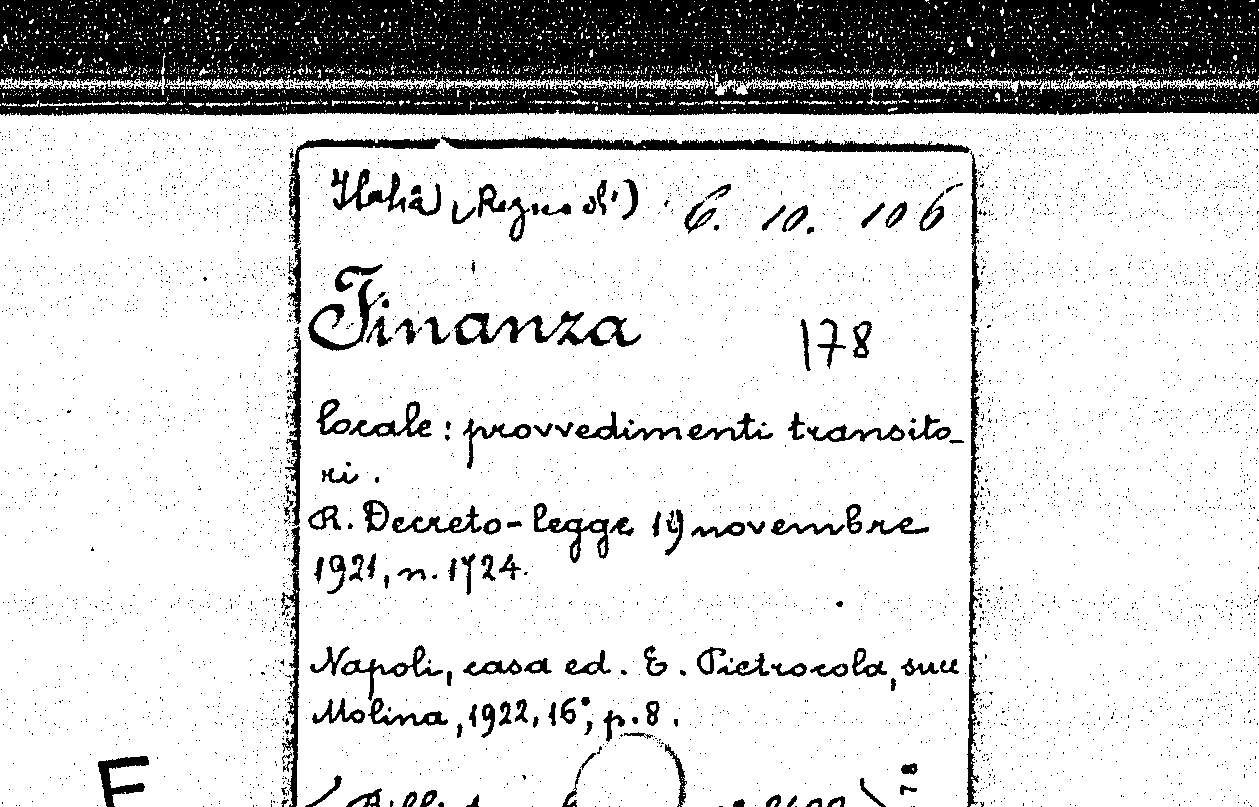 Italia (Regno d') 6. 10. 106
Finanza
178
locale: provvedimenti transito-
ri.
R. Decreto-legge 19 novembre
1921, n. 1724.
Napoli, casa ed. E. Pietrocola, succ
Molina, 1922, 16°, p. 8.
E
78